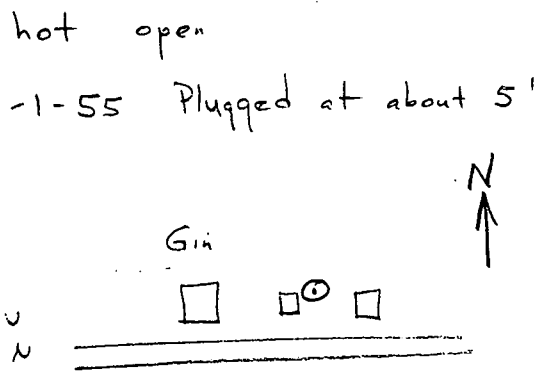 hot open
-1-55 Plugged at about 5'
N
Gin